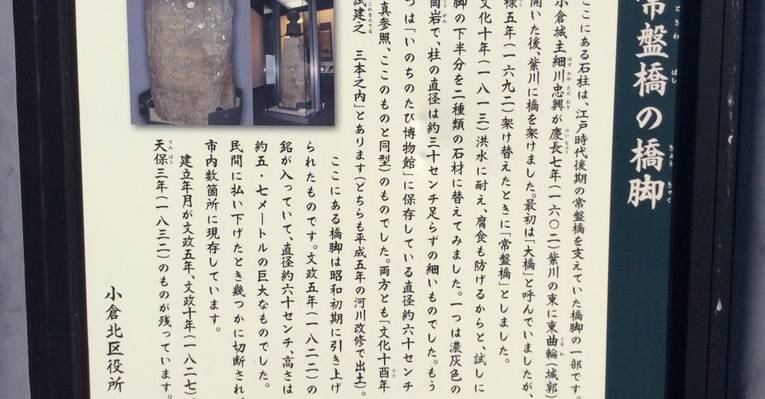 常盤橋の橋脚
ときわ ばし きょう きゃく
ここにある石柱は、江戸時代後期の常盤橋を支えていた橋脚の一部です。
小倉城主細川忠興が慶長七年(一六〇二)紫川の東に東曲輪(城郭)
開いた後、紫川に橋を架けました。最初は「大橋」と呼んでいましたが、
禄五年(一六九二)架け替えたときに「常盤橋」としました。
文化十年(一八一三)洪水に耐え、腐食も防げるからと、試しに
脚の下半分を二種類の石材に替えてみました。一つは濃灰色の
岩で、柱の直径は約三十センチ足らずの細いものでした。もう
つは「いのちのたび博物館」に保存している直径約六十センチ
真参照、ここのものと同型)のものでした。両方とも「文化十酉年
試建之 三本之内」とあります(どちらも平成五年の河川改修で出土)。
ここにある橋脚は昭和初期に引き上げ
られたものです。文政五年(一八二二)の
銘が入っていて、直径約六十センチ、高さは
約五・七メートルの巨大なものでした。
民間に払い下げたとき幾つかに切断され、
市内数箇所に現存しています。
建立年月が文政五年、文政十年(一八二七)、
天保三年(一八三二)のものが残っています。
小倉北区役所